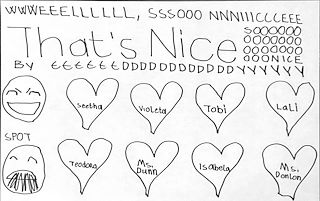 WWWEEELLLLLL, SSSOOO NNNIIICCCEEE
That's Nice
SOOOOOO
OOOOOOO
OOOOOOO
OOONICE
BY EEEEEEEDDDDDDDDDDDDDYYYYYYY
Seetha
Violeta
Tobi
LaLi
SPOT
Teodora
Ms. Dunn
Isabela
Ms. Donlon